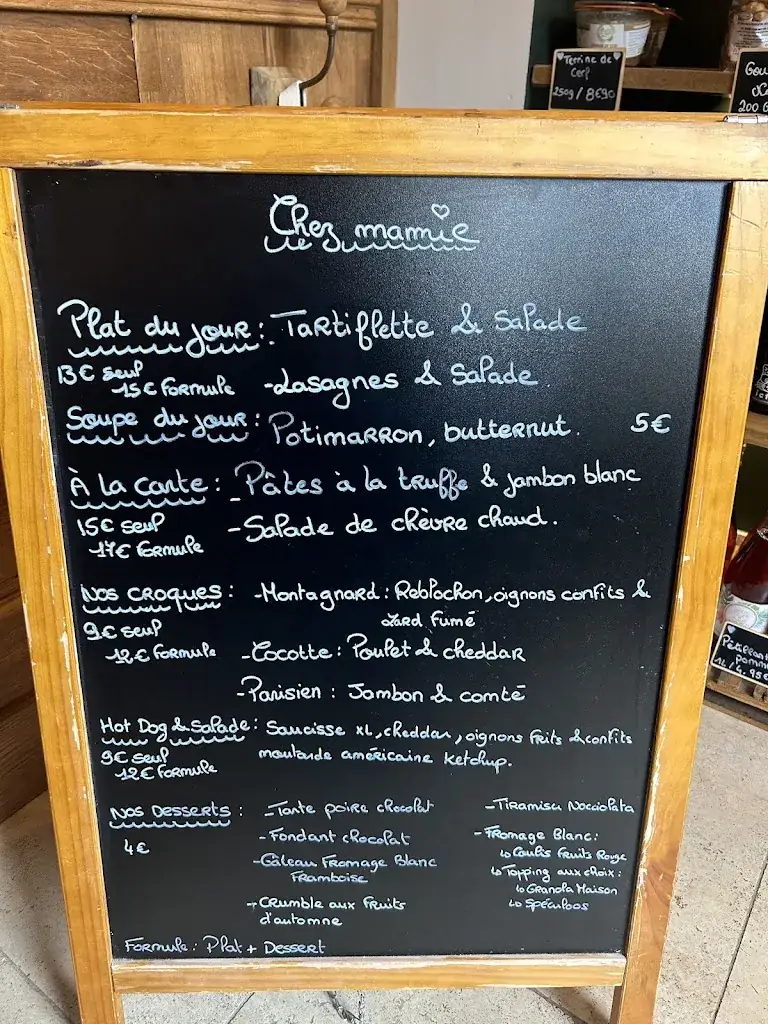 Terrine de
Cerf
250g / 8€90
Gou
200 G
Chez mamie
Plat du jour : Tartiflette & Salade
13€ seul
15€ Formule - Lasagnes & Salade
Soupe du jour : Potimarron, butternut. 5€
À La carte : - Pâtes à la truffe & jambon blanc
15€ seul - Salade de chèvre chaud.
17€ formule
Nos croques : - Montagnard : Reblochon, oignons confits &
Lard fumé
9€ seul
12€ Formule - Cocotte : Poulet & cheddar
- Parisien : Jambon & comté
Hot Dog & Salade : Saucisse XL, cheddar, oignons frits & confits
9€ seul moutarde américaine ketchup.
12€ Formule
Nos Desserts : - Tarte poire chocolat - Tiramisu Nocciolata
4€ - Fondant chocolat - Fromage Blanc :
↳ Coulis fruits Rouge
- Gâteau Fromage Blanc
Framboise
↳ Topping aux choix :
↳ Granola Maison
↳ Spéculoos
→ Crumble aux fruits
d'automne
Formule : Plat + Dessert
Pétillant
pomme
1L / 4.95€